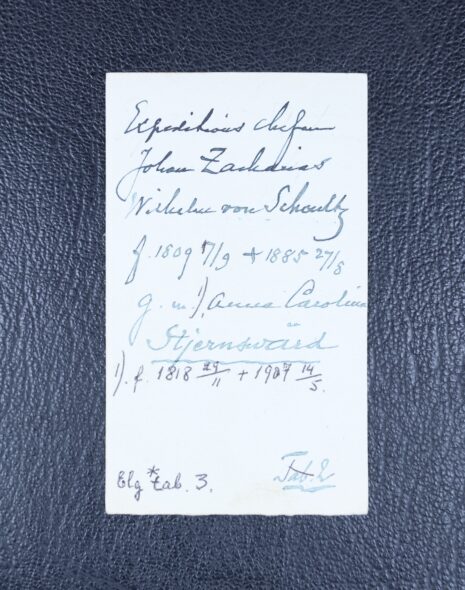 Expeditions chefen
Johan Zacharias
Wilhelm von Schoultz
f. 1809 7/9 + 1885 27/8
g. m. 1), Anna Carolina
Stjernsvärd
1). f. 1818 29/11 + 1907 14/5.
Elg * tab. 3.
Tab. 2